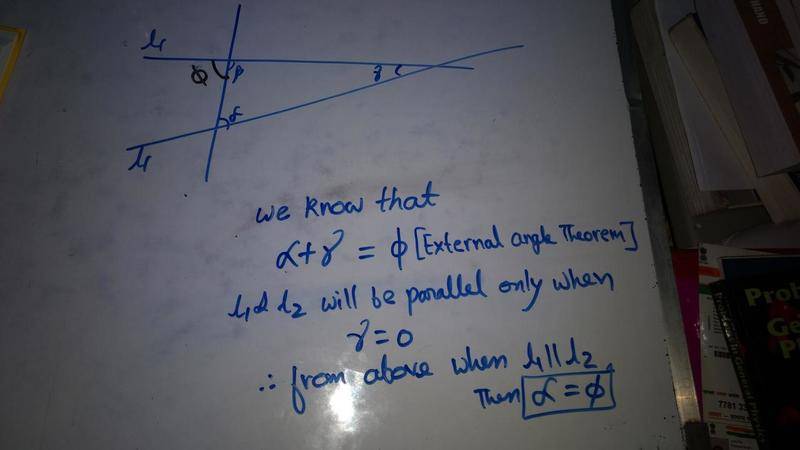 l₁
ϕ
β
γ
α
l₁
we know that
α+γ = ϕ [External angle Theorem]
l₁ & l₂ will be parallel only when
γ=0
∴ from above when l₁ || l₂
Then α = ϕ
HAND
Prob
Ge
P
7781 33